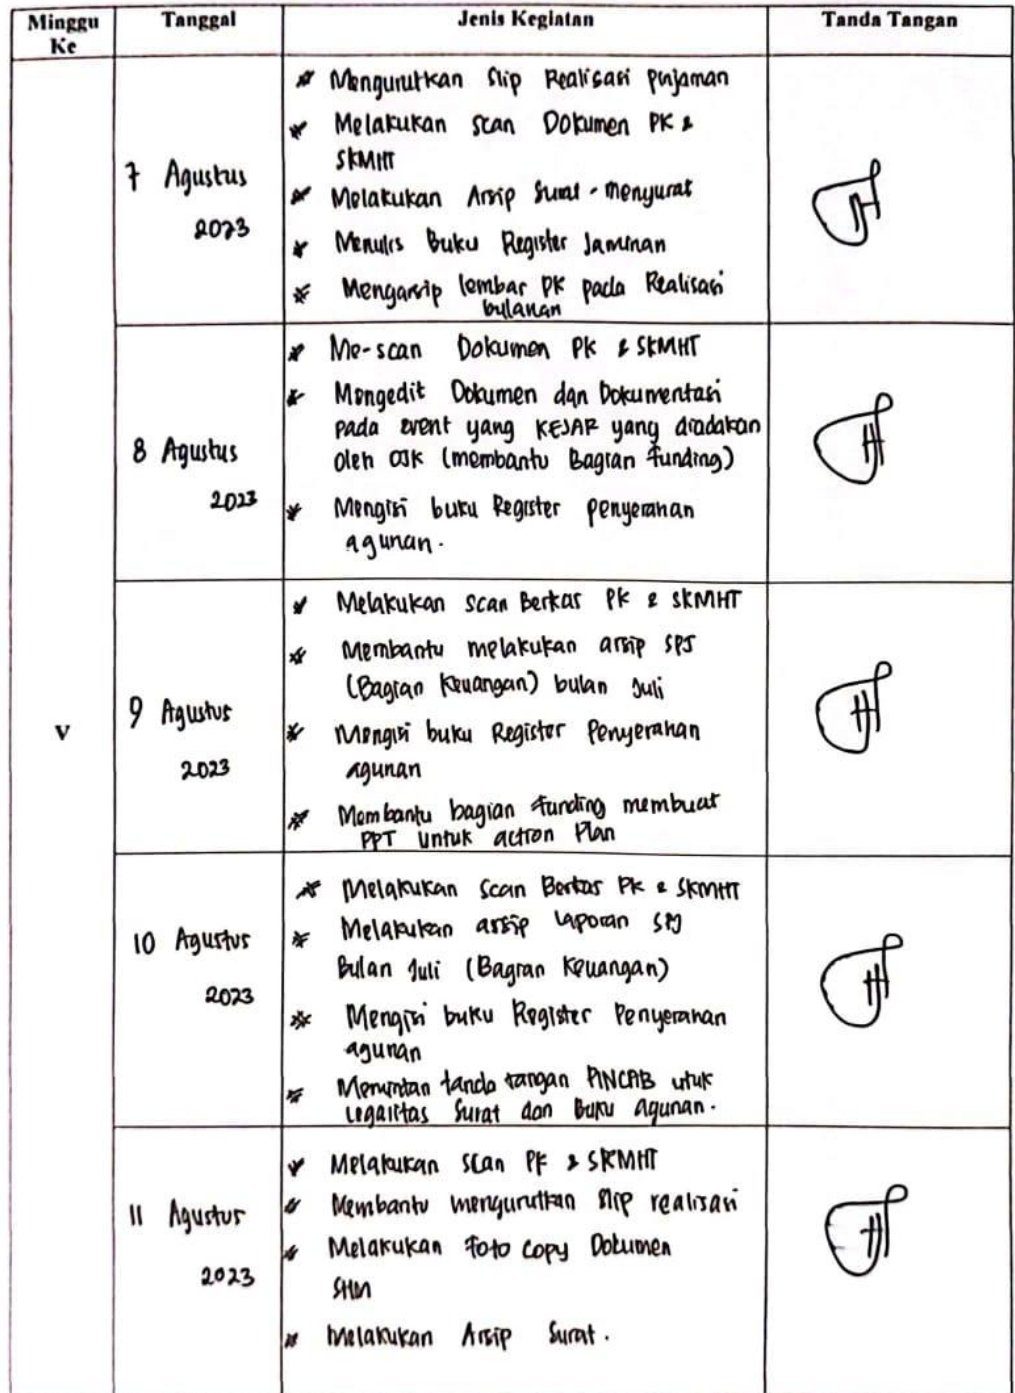 Minggu Ke Tanggal Jenis Kegiatan Tanda Tangan
V
7 Agustus
2023
* Mengurutkan Slip Realisasi pinjaman
* Melakukan scan Dokumen PK &
SKMHT
* Melakukan Arsip Surat-menyurat
* Menulis Buku Register Jaminan
* Mengarsip lembar PK pada Realisasi
bulanan
8 Agustus
2023
* Me-scan Dokumen PK & SKMHT
* Mengedit Dokumen dan Dokumentasi
pada event yang KEJAR yang diadakan
oleh OJK (membantu Bagian funding)
* Mengisi buku Register penyerahan
agunan.
9 Agustus
2023
* Melakukan scan Berkas PK & SKMHT
* Membantu melakukan arsip SPJ
(Bagian Keuangan) bulan Juli
* Mengisi buku Register Penyerahan
agunan
* Membantu bagian funding membuat
PPT untuk action Plan
10 Agustus
2023
* Melakukan Scan Berkas PK & SKMHT
* Melakukan arsip laporan SPJ
Bulan Juli (Bagian Keuangan)
* Mengisi buku Register Penyerahan
agunan
* Memintan tanda tangan PINCAB utuk
Legalitas Surat dan Buku Agunan.
11 Agustus
2023
* Melakukan Scan PK & SKMHT
* Membantu mengurutkan slip realisasi
* Melakukan Foto copy Dokumen
SHM
* Melakukan Arsip Surat.